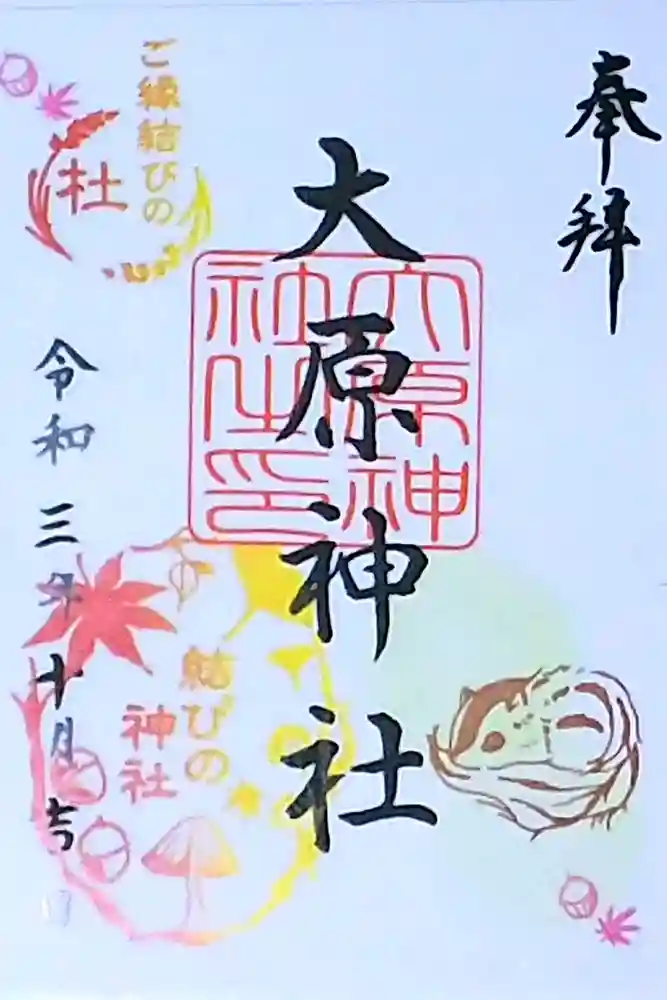 奉拝
大原神社
大原神
社之印
ご縁結びの
杜
結びの
神社
令和三年十月吉日